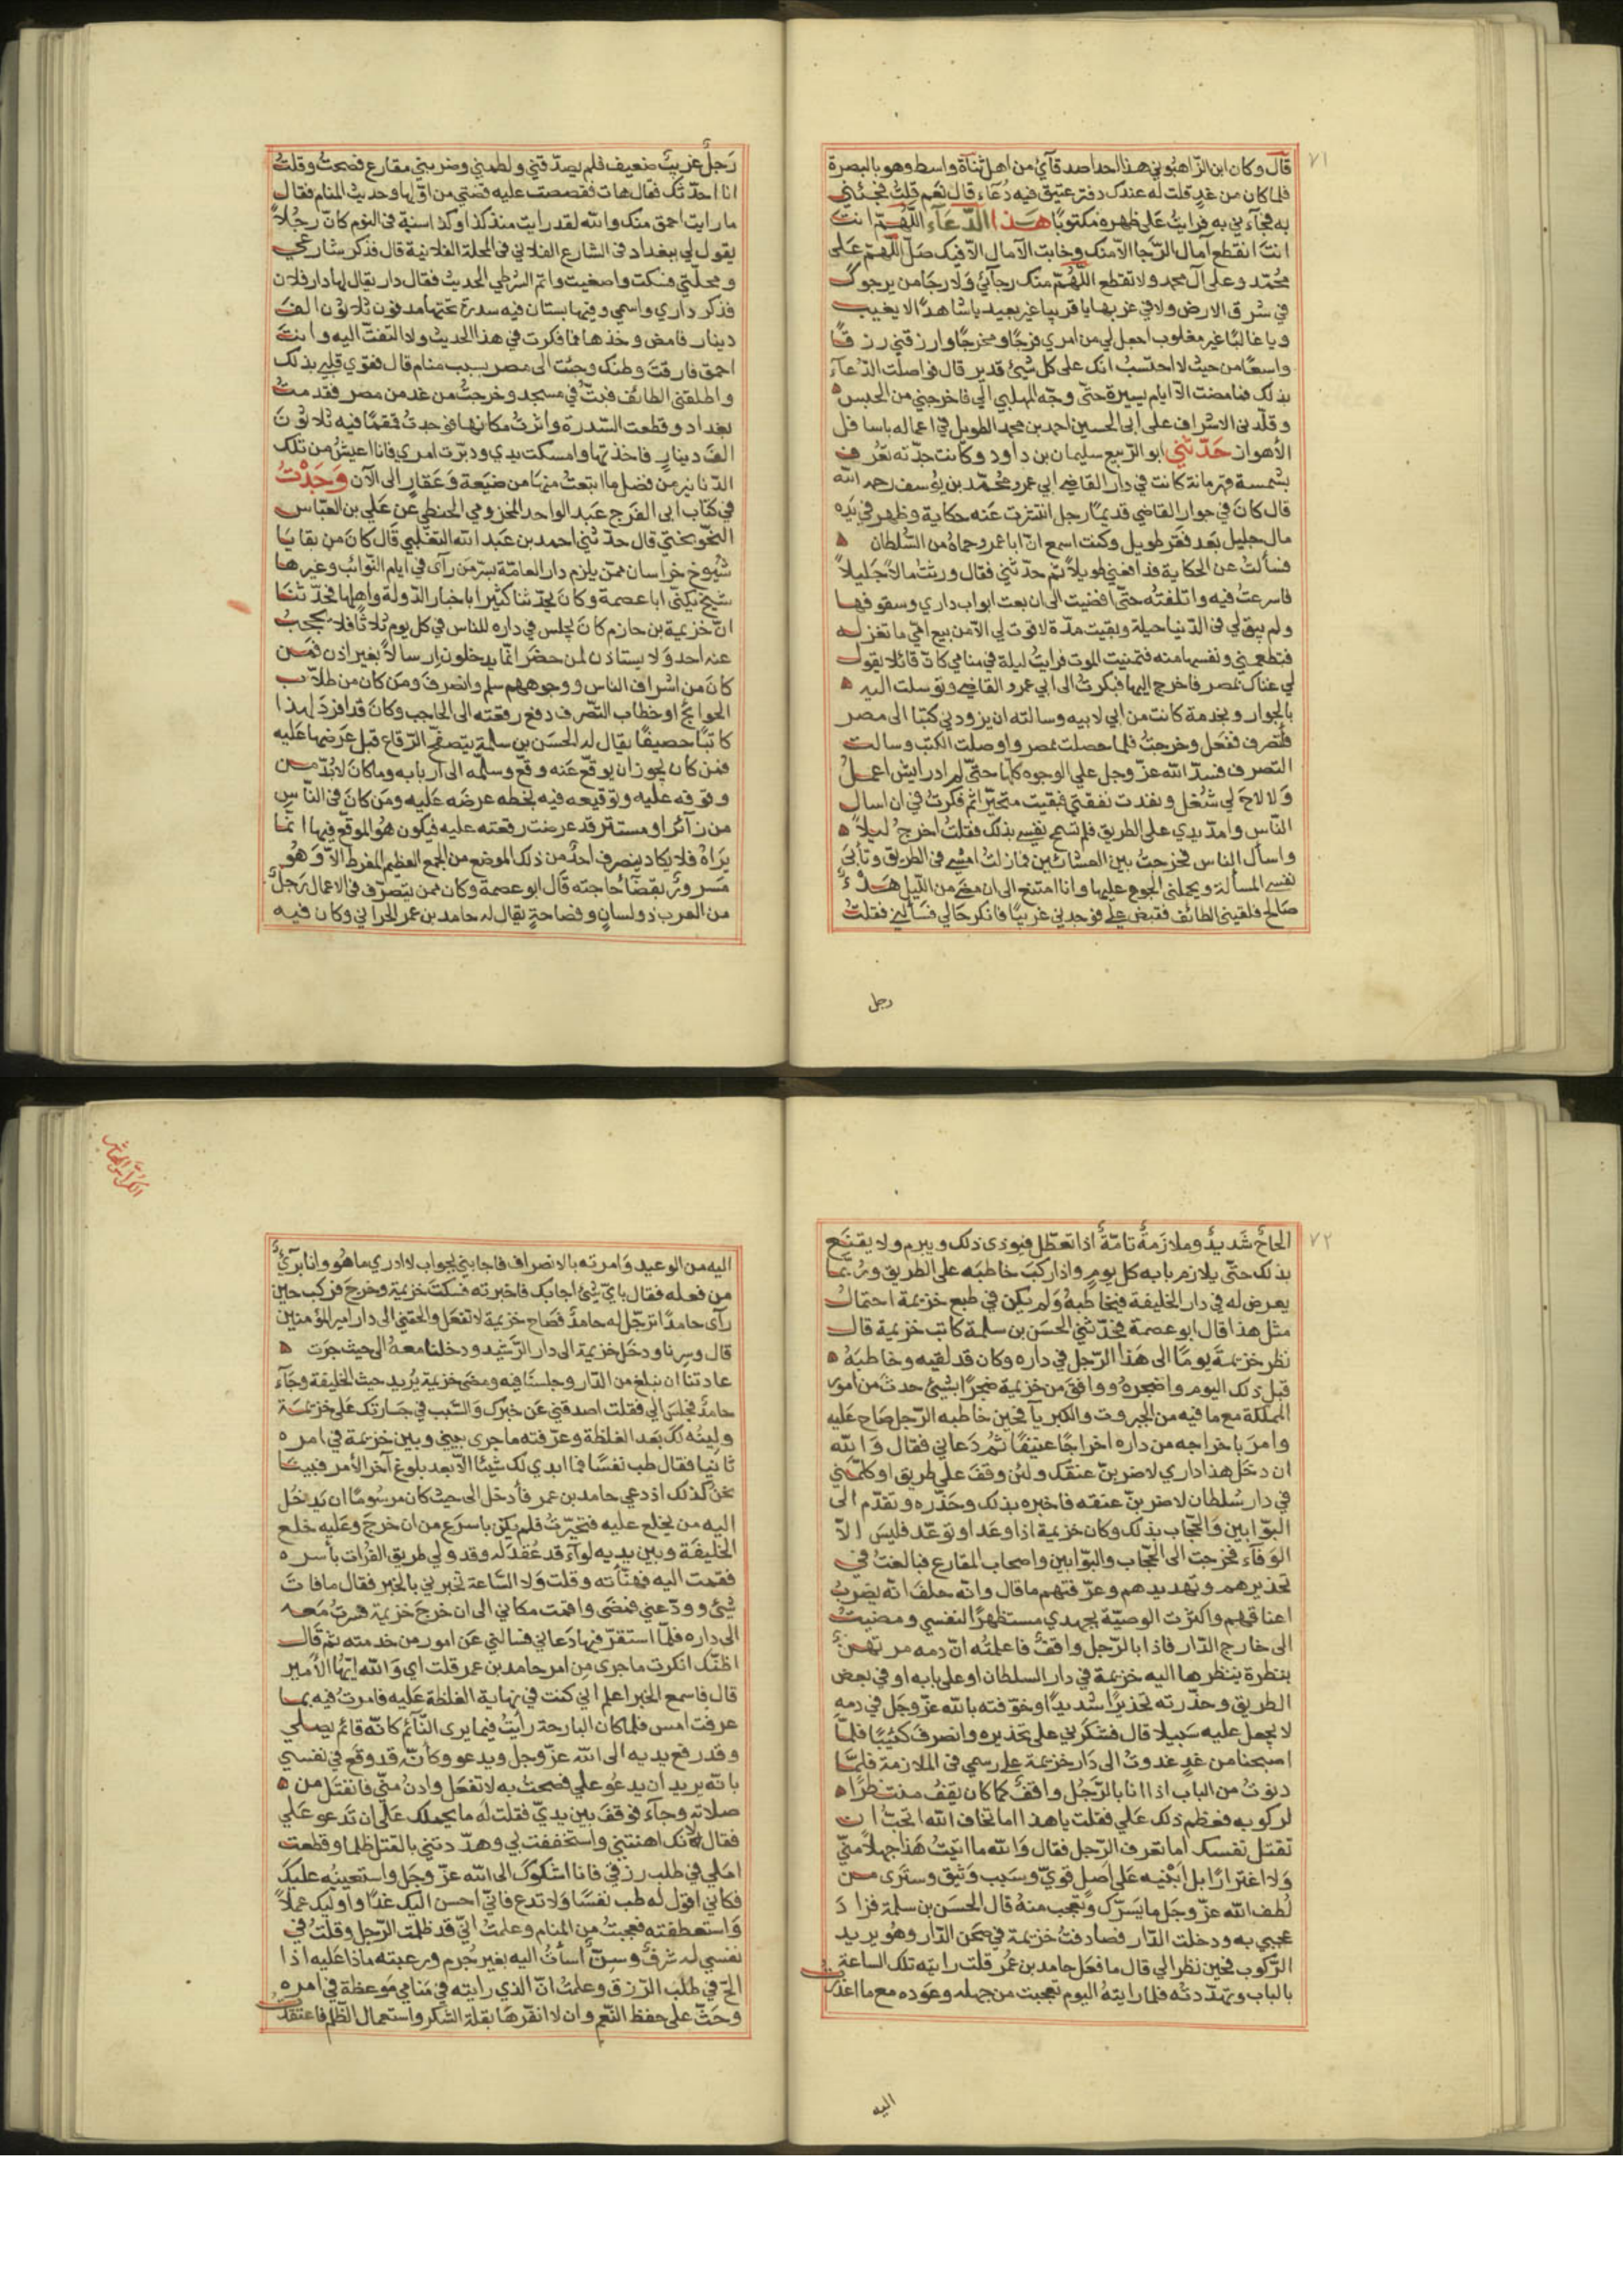 ٧١
قال وكان ابن الزاهبوني هذا احد اصدقآئي من اهل ثناة واسط وهو بالبصرة
فلما كان من غدٍ قلت له عندك دفتر عتيق فيه دُعآء قال نعم قلت فجئني
به فجآءني به فرايتُ على ظهره مكتوبًا هذا الدّعآء اللّهم انت
انت انقطع امال الرّجا الا منك وخابت الآمال الا فيك صلّ اللّهم على
محمّد وعلى آل محمد ولا تقطع اللّهم منك رجآئي وَلا رجا من يرجوك
في شرق الارض ولا في غربها يا قريبا غير بعيد يا شاهدًا لا يغيب
ويا غالبًا غير مغلوب اجعل لي من امري فرجًا ومخرجًا وارزقني رزقًا
واسعًا من حيث لا احتسبُ انك على كل شيئ قدير قال فواصلت الدّعآء
بذلك فما مضت الا ايام يسيرة حتّى وجّه المهلبي الي فاخرجني من الحبس
وقلّدني الاشراف على ابي الحسين احمد بن محمد الطويل في اعماله باسافل
الأهواز حَدّثني ابو الرّبيع سليمان بن داود وكانت جدّته تعرف
بشمسة قهرمانة كانت في دار القاضي ابي عمرو محمّد بن يوسف رحمه الله
قال كانَ في جوار القاضي قديمًا رجل انتشرت عنه حكاية وظهر في يَدِه
مال جليل بعد فقر طويل وكنت اسمع انّ ابا عمرو حماهُ من السّلطان
فسألتُ عن الحكاية فدافعني طويلاً ثم حدّثني فقال ورثتُ مالاً جَليلاً
فاسرعتُ فيه واتلفته حتى افضيت الى ان بعت ابواب داري وسقوفها
ولم يبق لي في الدّنيا حيلة وبقيت مدّة لا قوت لي الا من بيع امّي ما تغزله
فتطعمني ونفسها منه فتمنيت الموت فرايتُ ليلة في منامي كانّ قائلا يقول
لي غناك بمصر فاخرج اليها فبكرتُ الى ابي عمرو القاضي وتوسلت اليه
بالجوار وبخدمة كانت من ابي لابيه وسالته ان يزودني كتبًا الى مصر
فاتصرف ففعل وخرجتُ فلما حصلت بمصر واوصلت الكتب وسالت
التصرف فسدّ الله عزّ وجل علي الوجوه كلّها حتّى لم ادر ايش اعملُ
وَلا لاحَ لي شُغل ونفدت نفقتي فبقيت متحيّرًا ثم فكرتُ في ان اسال
النّاس وامدّ يدي على الطريق فلم تسمح نفسي بذلك فقلتُ اخرج ليلاً
واسأل الناس فخرجتُ بين العشائين فما زلت امشي في الطريق وتأبى
نفسي المسألة ويحملني الجوع عليها وانا امتنع الى ان مضى من اللّيل هَدْءٌ
صالح فلقيني الطائف فقبض علي فوجدني غريبًا فانكر حالي فسألني فقلتُ
رجل
رَجلٌ غريبٌ ضعيف فلم يصدّقني ولطمني وضربني مقارع فصحتُ وقلتُ
انا احدّثك فقال هات فقصصت عليه قصّتي من اوّلها وحديث المنام فقال
ما رايت احمق منك والله لقد رايت منذ كذا وكذا سنة في النوم كانّ رجُلاً
يقول لي ببغداد في الشارع الفلاني في المحلة الفلانية قال فذكر شارعي
ومحلّتي فسكت واصغيت واتم الشرطي الحديث فقال دار يقال لها دار فلان
فذكر داري واسمي وفيها بستان فيه سدرة تحتها مدفون ثلاثون الف
دينار فامض وخذها فما فكرت في هذا الحديث ولا التفتّ اليه وانت
احمق فارقت وطنك وجئت الى مصر بسبب منام قال فقوي قلبي بذلك
واطلقني الطائف فبتُّ في مسجد وخرجتُ من غد من مصر فقدمت
بغداد وقطعت السّدرة واثرتُ مكانها فوجدتُ قمقمًا فيه ثلاثون
الف دينار فاخذتها وامسكت يدي ودبّرت امري فانا اعيش من تلك
الدّنانير من فضل ما ابتعتُ منها من ضيَعة وَعَقارٍ الى الآن وَجَدْتُ
في كتاب ابي الفرج عبَد الواحد المخزومي الحنطبي عن عَلي بن العبّاس
النّوبختي قال حدّثني احمد بن عَبد الله التغلبي قال كانَ من بقايَا
شيُوخ خراسان ممّن يلزم دار العامّة بسرّ من رآى في ايام النّوائب وغيرها
شيخ يكنّى ابا عصمة وكانَ يحدّثنا كثيرًا باخبار الدّولة واهلها فحدّثنَا
انّ خزيمة بن حازم كانَ يجلس في داره للناس في كل يوم ثلاثًا فلا يحجبُ
عنه احد وَلا يستاذن لمن حضَر انّما يدخلون ارسالاً بغير اذن فمن
كانَ من اشراف الناس ووجوههم سلم وانصرفَ ومَن كان من طلاب
الحوائج او خطاب التّصرف دفع رقعته الى الحاجب وكانَ قد افردَ لهذا
كاتبًا حصيفًا يقال له الحسَن بن سلمة يتصفح الرّقاع قبل عَرضها عَليه
فمن كان يجوز ان يوقّع عَنه وقّع وسلّمه الى اربابه وما كانَ لا بُدّ من
وقوفه عليه وتوقيعه فيه بخطه عرضَه عَليه ومَن كانَ في النّاسِ
من زآئر او مستتر قد عرضت رقعته عليه فيكون هُو الموقّع فيها انما
يَراهُ فلا يكاد ينصرف احدٌ من ذلك الموضع من الجمع العظيم المفرط الاّ وَهُو
مَسرورٌ بقضَآء حاجته قال ابو عصمة وكان ممن يتصرّف في الاعمال رَجلٌ
من العرب ذو لسانٍ وفصاحةٍ يقال له حامد بن عمر الحراني وكان فيه
٧٢
الحاحٌ شَديدٌ وملازمَةٌ تامّةٌ اذا تعطّل فيوذى ذلك ويبرم ولا يقنع
بذلك حتّى يلازم بابه كل يومٍ واذا ركبَ خاطبَه على الطريق وربّما
يعرض له في دار الخليفة فيخاطبهُ وَلم يكن في طبع خزيمة احتمالُ
مثل هذا قال ابو عصمة فحَدّثني الحسَن بن سلمة كاتب خزيمة قال
نظر خزيمةَ يومًا الى هَذا الرّجل في داره وكان قد لقيه وخاطبَهُ
قبل ذلك اليوم واضجرهُ ووافق من خزيمة ضجرًا بشيئ حدثَ من امور
المملكة مع ما فيه من الجبروت والكبريآ فحين خاطبه الرّجل صَاح عَليه
وامرَ باخراجه من داره اخراجًا عنيفًا ثمُ دَعاني فقال وَالله
ان دخَل هذا داري لاضربنّ عنقك ولئن وقفَ علي طريق او كلّمني
في دار سُلطان لاضربنّ عنقه فاخبره بذلك وحَذّره وتقدّم الى
البوّابين وَالحجّاب بذلك وكان خزيمة اذا وعَد او توعّد فليسَ الاّ
الوَفآء فخرجت الى الحجّاب والبوّابين واصحاب المقارع فبالغتُ في
تحذيرهم وتهديدهم وعرّفتهم ما قال وانّه حلفَ انه يضربُ
اعناقهم واكثرت الوصيّة بجهدي مستظهرًا لنفسي ومضيتُ
الى خارج الدّار فاذا بالرّجل واقفٌ فاعلمتُه انّ دمه مرتهنٌ
بنظرة ينظرها اليه خزيمة في دار السلطان او على بابه او في بعض
الطريق وحذّرته تحذيرًا شديدًا وخوّفته بالله عزّ وجَل في دمهِ
لا يجعل عليه سَبيلا قال فشكَرني على تحذيره وانصرفَ كئيبًا فلمّا
اصبحنا من غدٍ غدوتُ الى دَار خزيمة على رسمي في الملازمة فلمّا
دنوتُ من الباب اذا انا بالرّجُل واقفٌ كما كان يَقِفُ منتظرًا
لركوبه فعظم ذلك عَلي فقلت يا هذا اما تخاف الله اتحبُّ ان
تقتل نفسك اما تعرف الرّجل فقال وَالله ما اتيتُ هَذا جهلاً منّي
وَلا اغترارًا بل ابْنيه عَلى اصلٍ قويّ وسَبب وَثيق وستَرى من
لُطف الله عزّ وجَل ما يَسرّك وتعجب منهُ قال الحسَن بن سلمة فزاد
عجبي به ودخلت الدّار فصادفتُ خزيمة في صَحن الدّار وهُو يريد
الرّكوب فحين نظر الي قال ما فعَل حامد بن عمُر قلت رايته تلك الساعة
بالباب وتهدّدتُه فلما رايتهُ اليوم تعجبت من جهله وعَوده مع ما اعذرتُ
اليه
الكراس العاشر
اليه من الوعيد وَامرته بالانصراف فاجابني بجواب لا ادري ما هُو وانا بَرِيٌّ
من فعله فقال بايّ شيئ اجابك فاخبرته فسكتَ خزيمة وخرجَ فركب حين
رآى حامدًا ترجّل له حامدٌ فصَاح خزيمة لا تفعَل والحقني الى دار امير المؤمنين
قال وسِرنا ودخَل خزيمة الى دار الرّشيد ودخلنا معهُ الى حيث جرَت
عادتنا ان نبلغ من الدّار وجلسنا فيه ومضى خزيمة يُريد حيث الخليفة وجَآء
حامدٌ فجلسَ الي فقلت اصدقني عَن خبرك وَالسّبب في جسَارتك عَلى خزيمة
ولينُه لك بَعد الغلظة وعرّفته ما جرى بيني وبين خزيمة في امره
ثانيا فقال طب نفسًا فما ابدي لك شيئًا الاّ بعد بلوغ آخر الأمر فبينَا
نحنُ كذلك اذ دعي حامد بن عمر فأدخل الى حيث كان مرسُومًا ان يَدخل
اليه من يخلع عليه فتحيّرتُ فلم يكن باسرَع من ان خرجَ وعَليه خلع
الخليفَة وبين يديه لوآء قد عُقدَ له وقد ولي طريق الفرَات بأسره
فقمت اليه فهنّأته وقلت وَلا السّاعة تخبرني بالخبر فقال ما فاتَ
شيئ وودّعني فمضَى واقمت مكاني الى ان خرجَ خزيمة فسرتُ مَعه
الى داره فلمّا استقرّ فيها دَعاني فسالني عَن امور من خدمته ثم قال
اظنّك انكرت ما جرى من امر حامد بن عمر قلت اي وَالله ايّها الأمير
قال فاسمع الخبر اعلم اني كنت في نهاية الغلظة عَليه فامرتُ فيه بما
عرفت امس فلما كان البارحة رايتُ فيما يرى النّآئم كانّه قائم يصلي
وقد رفع يديه الى الله عزّ وجل ويدعو وكأنّه قد وقع في نفسي
بانّه يريد ان يدعُو علي فصحت به لا تفعَل وادنُ منّي فانفتَل من
صلاته وجآء فوقفَ بين يديّ فقلت لَه ما يحملك عَلى ان تَدعو عَلي
فقال لانك اهنتني واستخففت بي وهدّدتني بالقتل ظلما وقطعت
امَلي في طلب رزقي فانا اشكوكَ الى الله عزّ وجَل واستعينُه عليكَ
فكاني اقول له طب نفسًا وَلا تدع فانّي احسن اليك غدًا واوليك عملاً
وَاستعطفته فعجبتُ من المنام وعلمتُ انّي قد ظلمت الرّجل وقلتُ في
نفسي له شرفٌ وسِنّ اسأتُ اليه بغير جُرم ورعبته ماذا عَليه اذا
الحّ في طلب الرّزق وعلمتُ انّ الذي رايته في مَنامي مَوعظة في امره
وحَثّ على حفظ النّعم وان لا انفّرهَا بقلّة الشّكر واستعمال الظّلم فاعتقدتُ